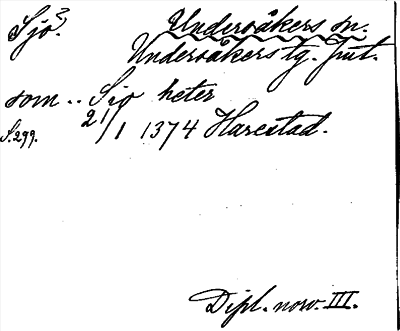 Sjö? Undersåkers sn.
Undersåkers tg. Jmt.
som .. Sio heter
S. 299. 21/1 1374 Harestad.
Dipl. norv. III.